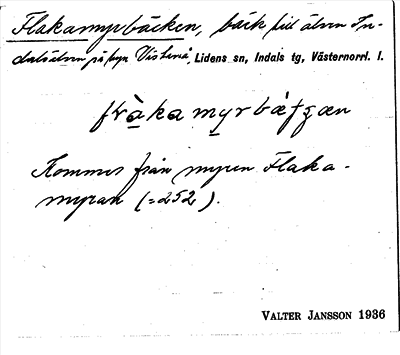 Flakamyrbäcken, bäck till älven In-
dalsälven på byn Västerå, Lidens sn, Indals tg, Västernorrl. l.
flàka myrbä̀ʃʒæn
Kommer från myren Flaka-
myran (=252).
VALTER JANSSON 1936